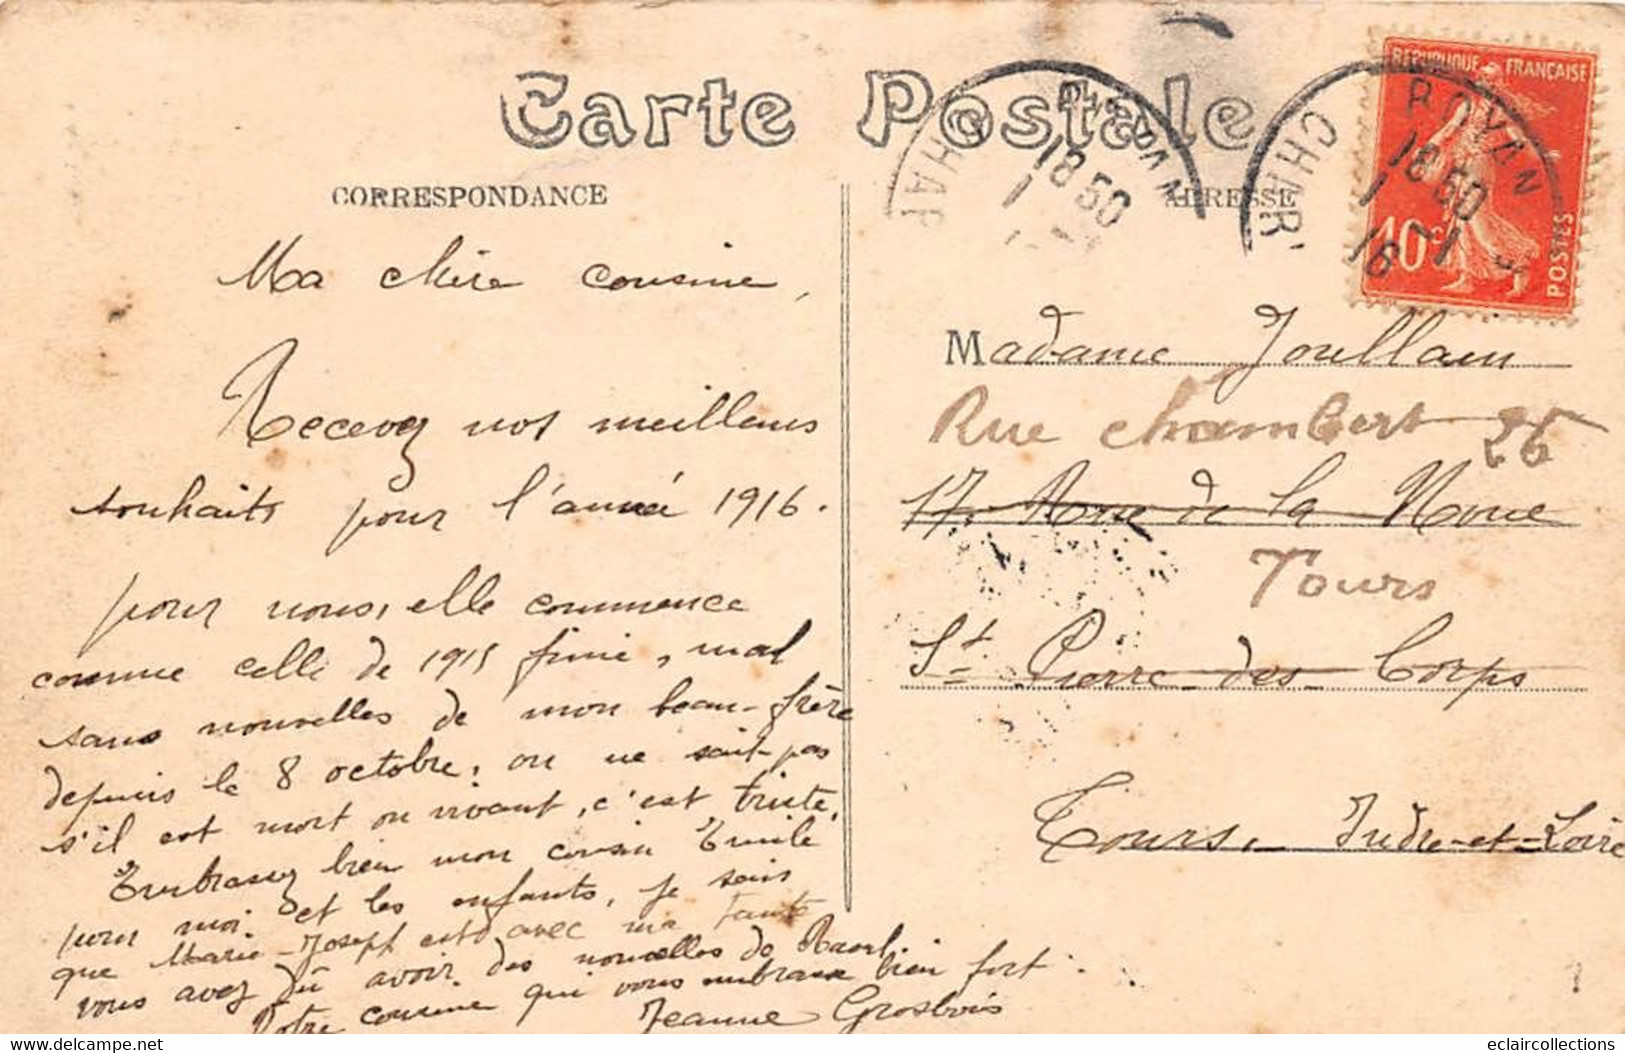 Carte Postale
CORRESPONDANCE
ADRESSE
REPUBLIQUE FRANÇAISE
10c
POSTES
ROYAN
18 50
1 - 1
16
CHAR
ROYAN
18 50
1
CHAR
Ma chère cousine,
Recevez nos meilleurs
souhaits pour l'année 1916.
pour nous, elle commence
comme celle de 1915 finie, mal
sans nouvelles de mon beau-frère
depuis le 8 octobre, on ne sait pas
s'il est mort ou vivant, c'est triste.
Embrassez bien mon cousin Emile
pour moi et les enfants, je sais
que Marie-Joseph est avec ma Tante
vous avez dû avoir des nouvelles de Raoul.
Votre cousine qui vous embrasse bien fort.
Jeanne Grosbois
Madame Joullain
Rue Chambert 26
17 Rue de la Noue
Tours
St Pierre-des-Corps
Tours, Indre-et-Loire
www.delcampe.net
eclaircollections